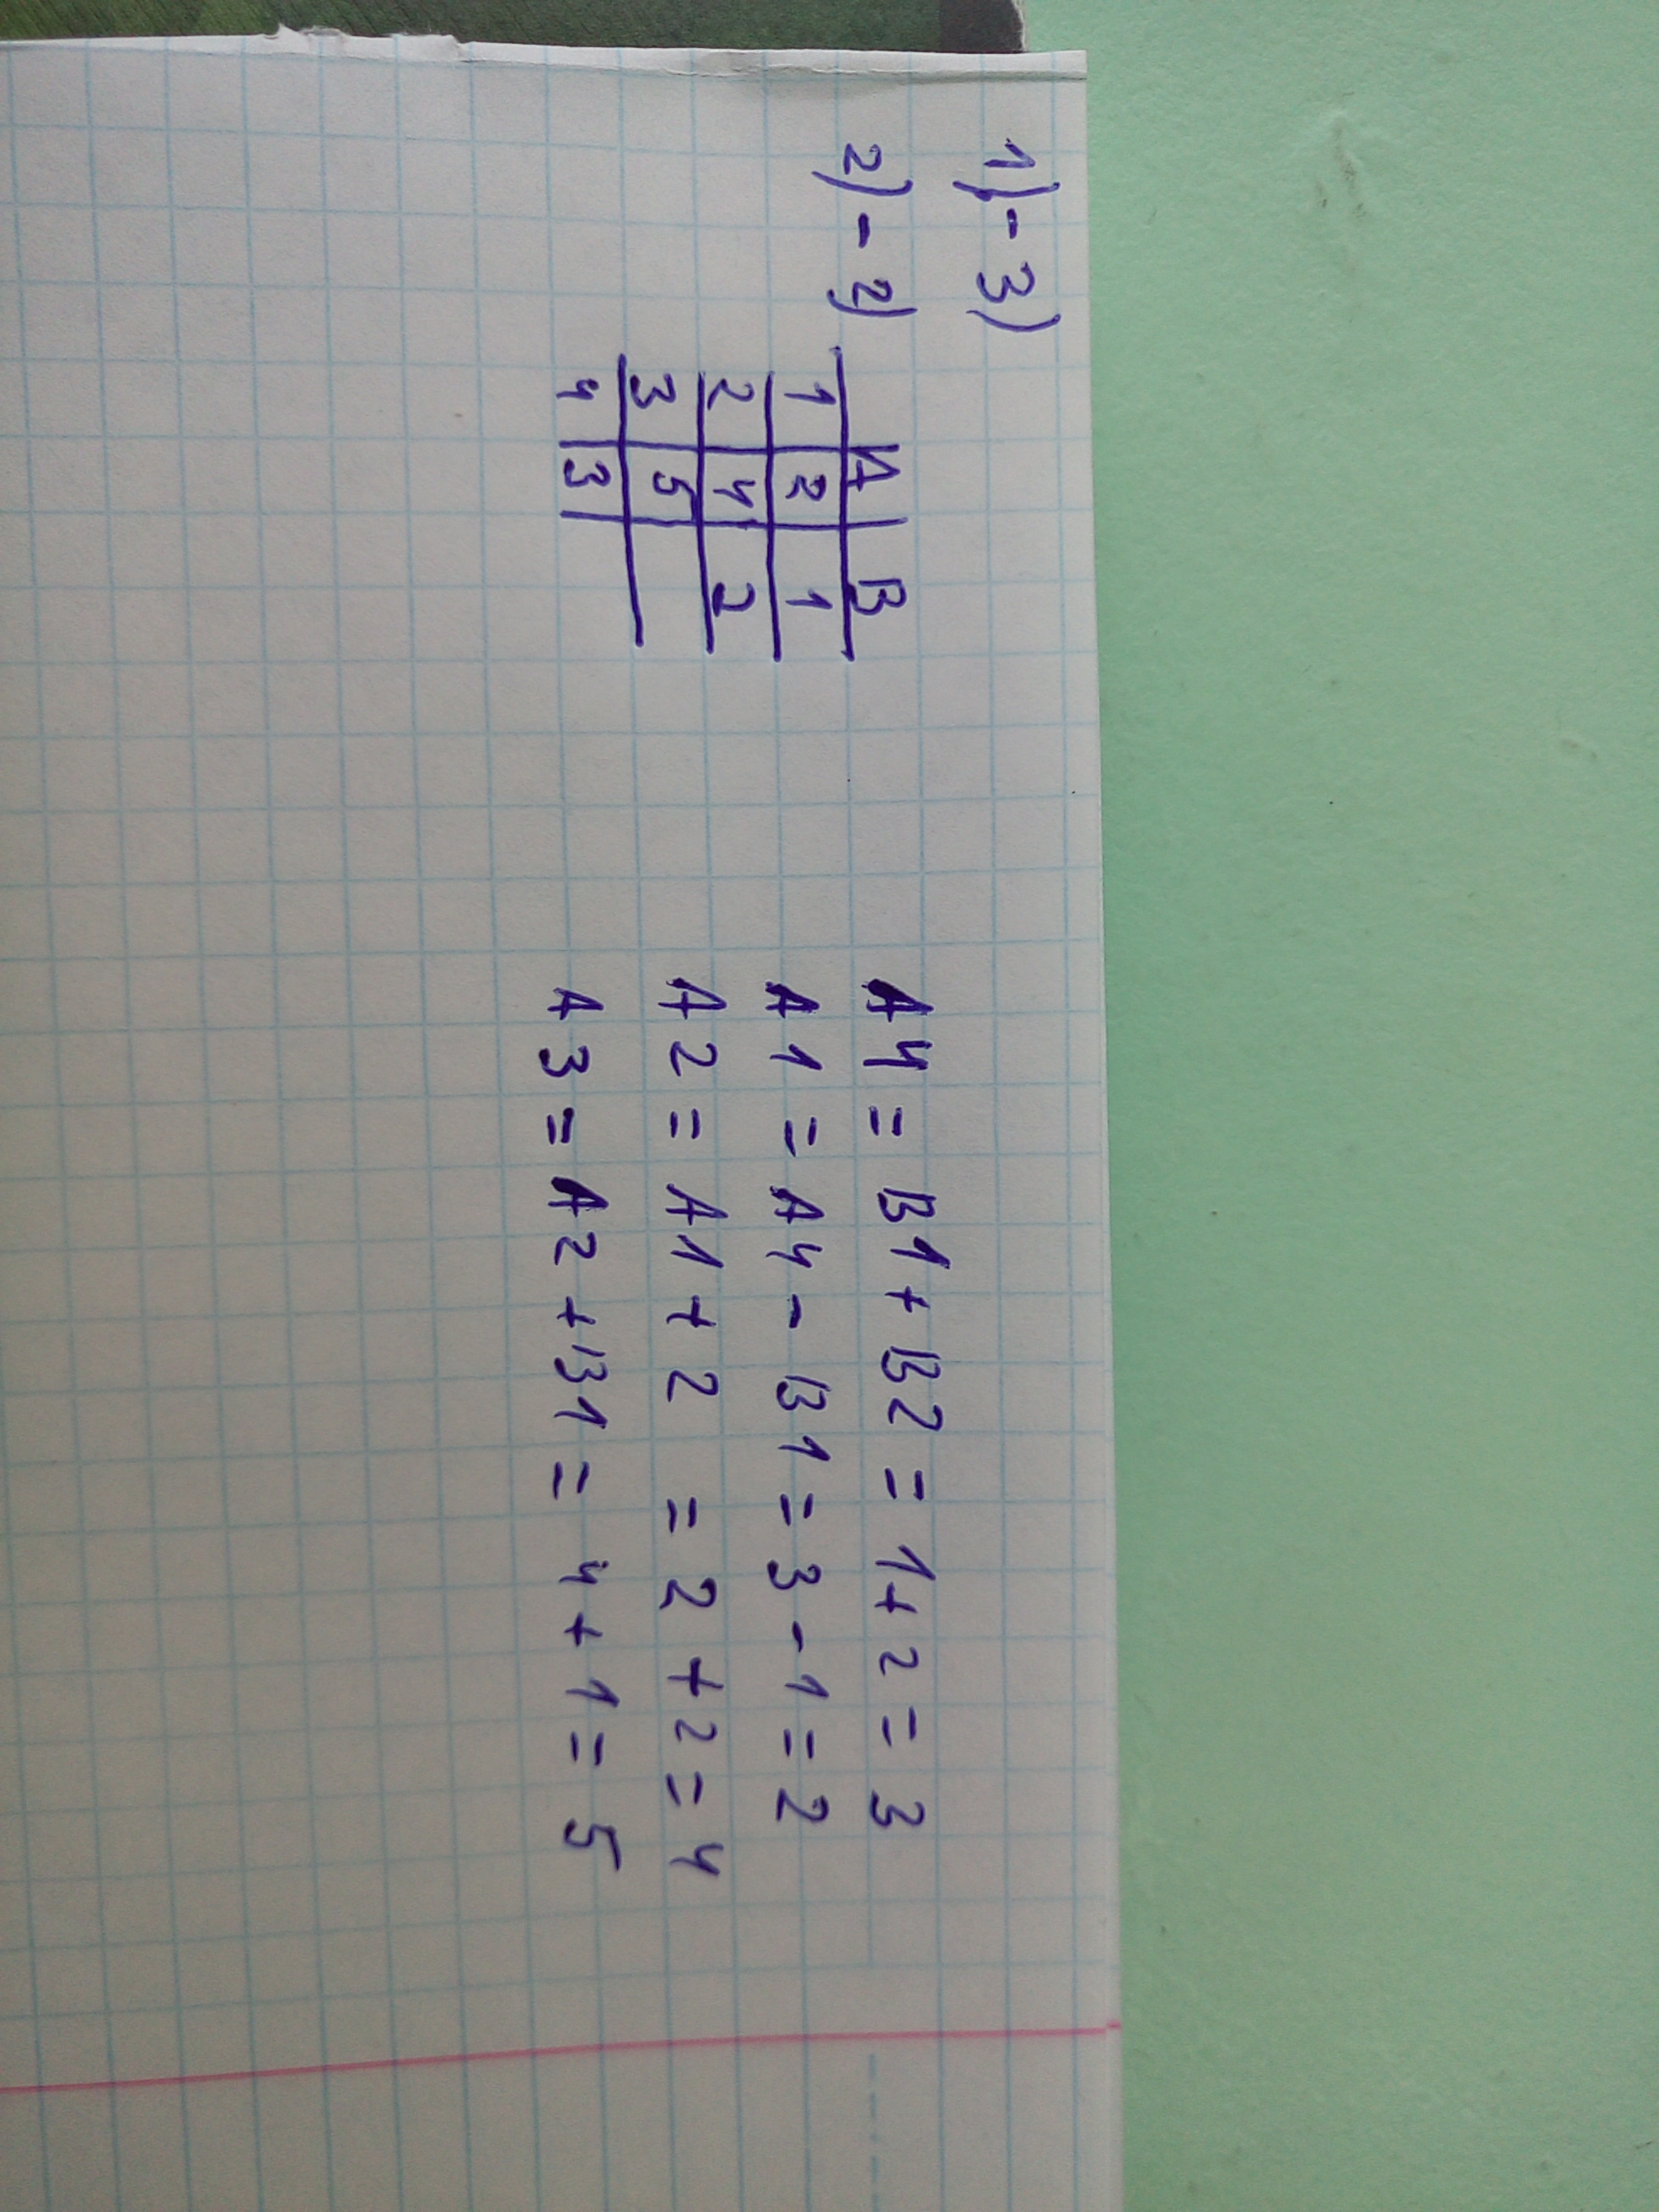 1) - 3)
2) - 2)
A B
1 2 1
2 4 2
3 5
4 3
A4 = B1 + B2 = 1 + 2 = 3
A1 = A4 - B1 = 3 - 1 = 2
A2 = A1 + 2 = 2 + 2 = 4
A3 = A2 + B1 = 4 + 1 = 5